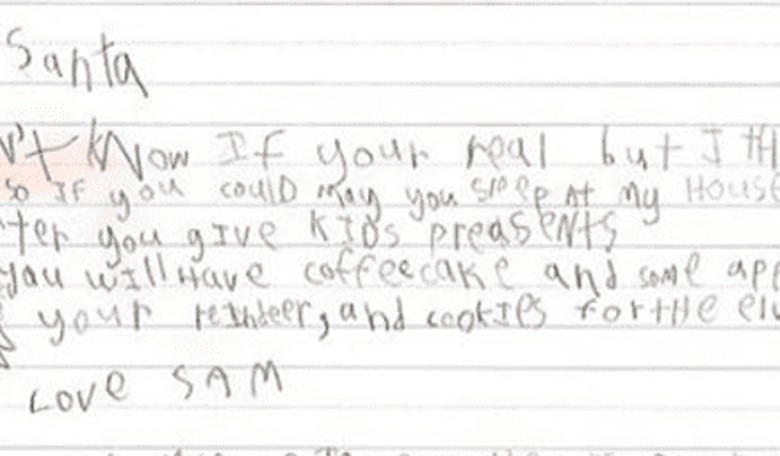 Santa
n't kNow If your real but I th
so IF you could may you sleep At my House
ter you gIve KIDs preasents
you will Have coffeecake and some app
your reIndeer, and cookIes for tHe elv
Love SAM